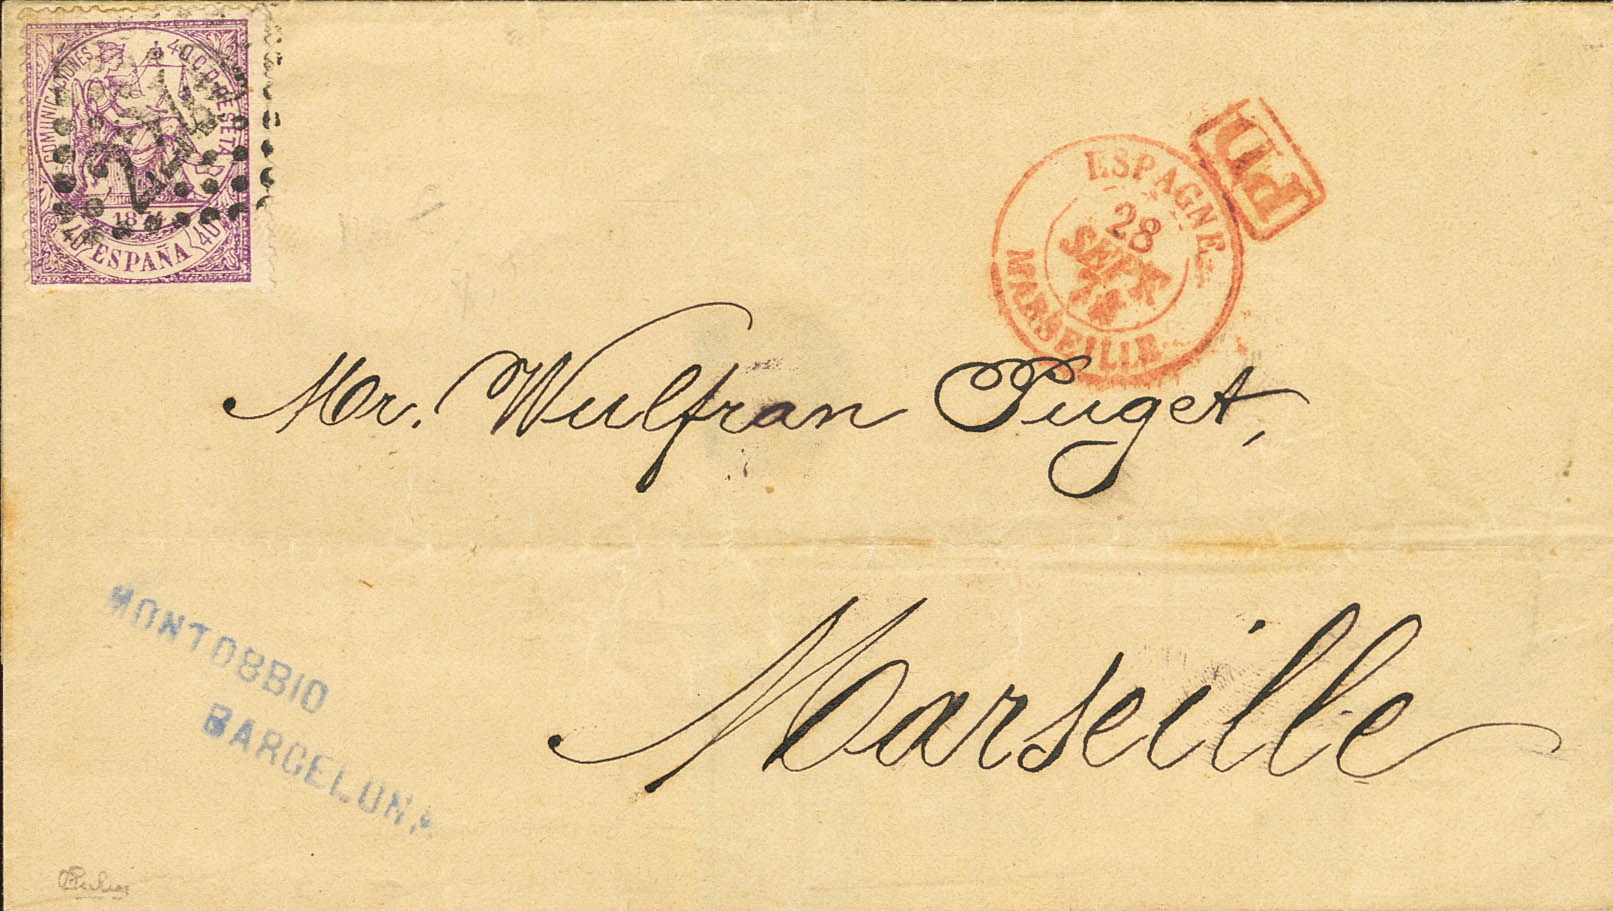 COMUNICACIONES 40 C. DE PESETA
1874
40 ESPAÑA 40
PD
ESPAGNE
28
SEPT
74
MARSEILLE
Mr. Wulfran Puget,
Marseille
MONTOBBIO
BARCELONA